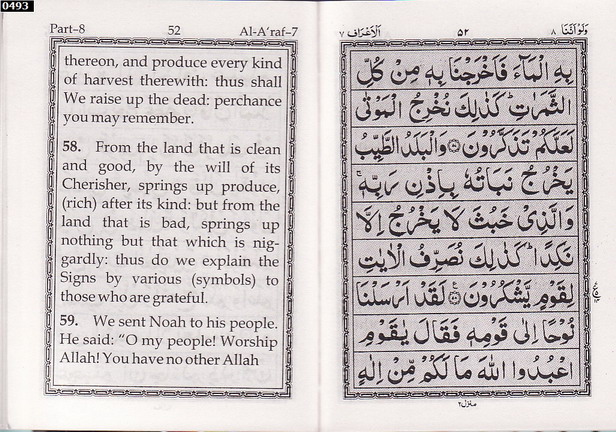 0493
Part–8 52 Al-A'raf–7
thereon, and produce every kind
of harvest therewith: thus shall
We raise up the dead: perchance
you may remember.
58. From the land that is clean
and good, by the will of its
Cherisher, springs up produce,
(rich) after its kind: but from the
land that is bad, springs up
nothing but that which is nig-
gardly: thus do we explain the
Signs by various (symbols) to
those who are grateful.
59. We sent Noah to his people.
He said: "O my people! Worship
Allah! You have no other Allah
وَلَوْ اَنَّنَا ٨ ٥٢ اَلْاَعْرَاف ٧
بِهِ الْمَآءَ فَاَخْرَجْنَا بِهٖ مِنْ كُلِّ
الثَّمَرٰتِ ؕ كَذٰلِكَ نُخْرِجُ الْمَوْتٰى
لَعَلَّكُمْ تَذَكَّرُوْنَ ۝ وَالْبَلَدُ الطَّيِّبُ
يَخْرُجُ نَبَاتُهٗ بِاِذْنِ رَبِّهٖ ۚ
وَالَّذِىْ خَبُثَ لَا يَخْرُجُ اِلَّا
نَكِدًا ؕ كَذٰلِكَ نُصَرِّفُ الْاٰيٰتِ
لِقَوْمٍ يَّشْكُرُوْنَ ۝ لَقَدْ اَرْسَلْنَا
نُوْحًا اِلٰى قَوْمِهٖ فَقَالَ يٰقَوْمِ
اعْبُدُوا اللّٰهَ مَا لَكُمْ مِّنْ اِلٰهٍ
منزل ٢